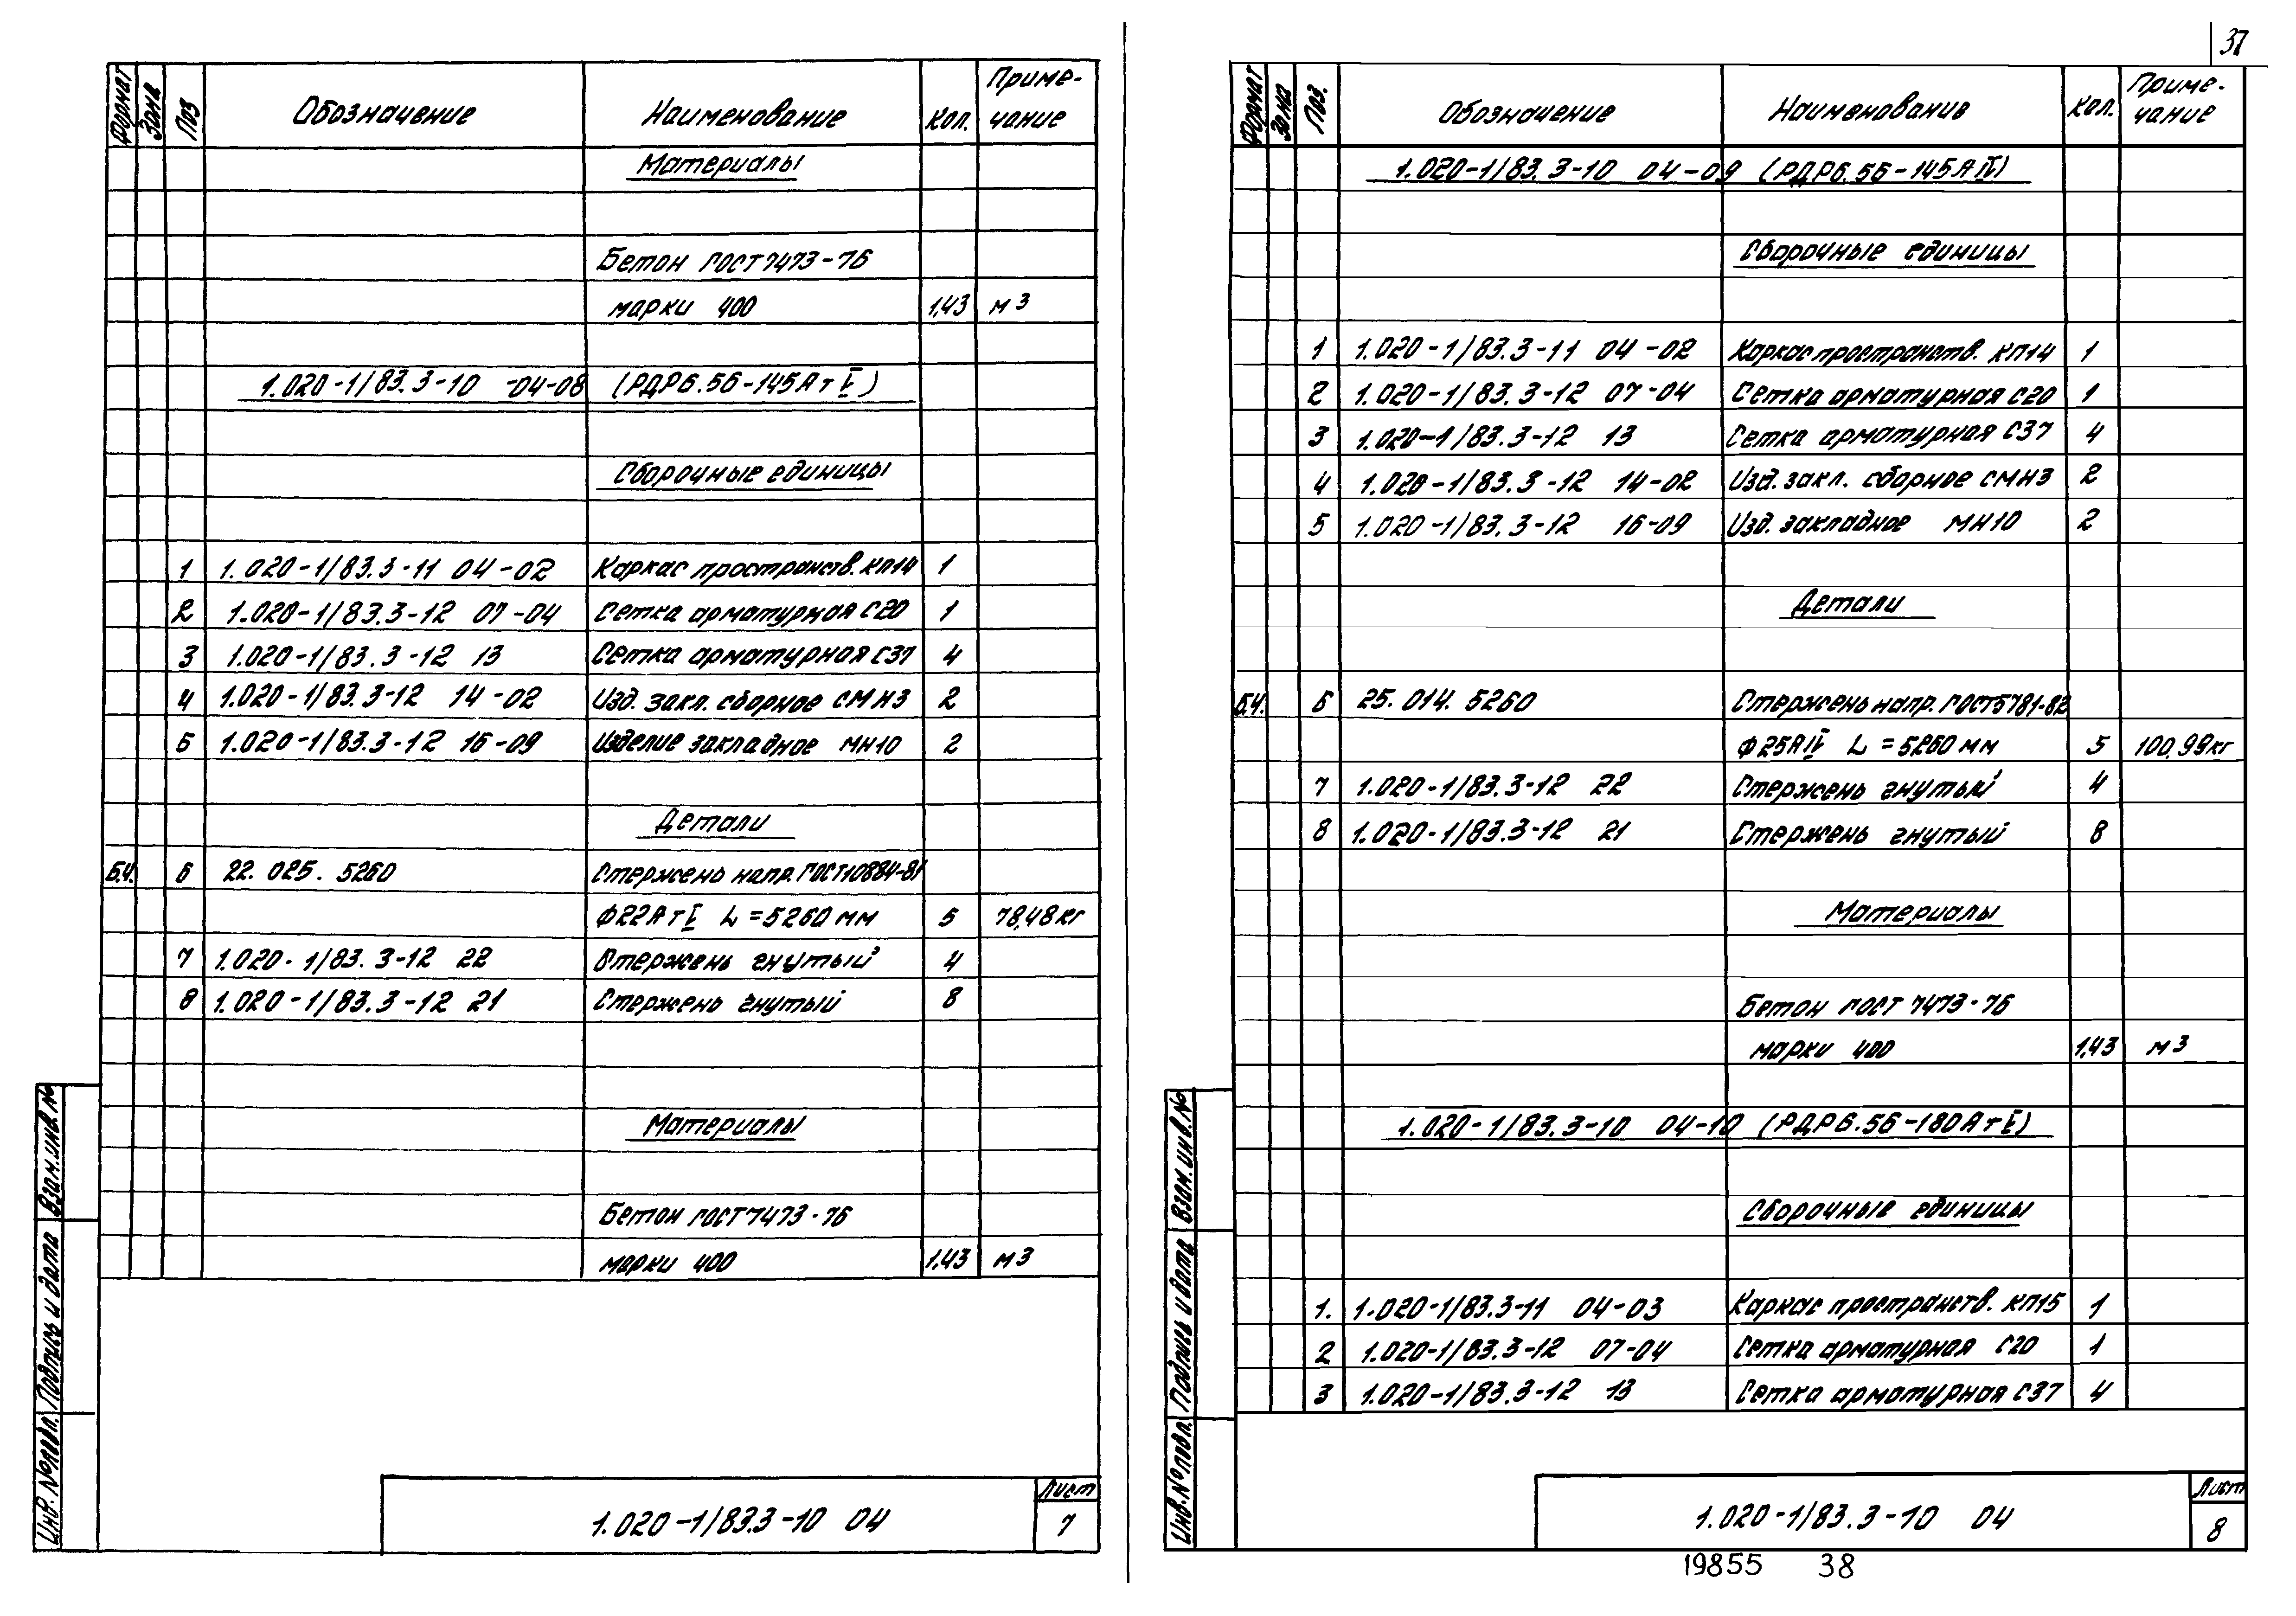 37
Формат Зона Поз Обозначение Наименование Кол. Приме-
чание
Материалы
Бетон ГОСТ 7473-76
марки 400 1,43 м3
1.020-1/83.3-10 -04-08 (РДР6.56-145АтV)
Сборочные единицы
1 1.020-1/83.3-11 04-02 Каркас пространств. КП14 1
2 1.020-1/83.3-12 07-04 Сетка арматурная С20 1
3 1.020-1/83.3-12 13 Сетка арматурная С37 4
4 1.020-1/83.3-12 14-02 Изд. закл. сборное СМН3 2
5 1.020-1/83.3-12 16-09 Изделие закладное МН10 2
Детали
Б.Ч. 6 22. 025. 5260 Стержень напр. ГОСТ10884-81
Ф22АтV L=5260 мм 5 78,48кг
7 1.020-1/83.3-12 22 Стержень гнутый 4
8 1.020-1/83.3-12 21 Стержень гнутый 8
Материалы
Бетон ГОСТ 7473-76
марки 400 1,43 м3
Взам.инв.№
Подпись и дата
Инв.№подл.
1.020-1/83.3-10 04
Лист
7
Формат Зона Поз. Обозначение Наименование Кол. Приме-
чание
1.020-1/83.3-10 04-09 (РДР6.56-145АIV)
Сборочные единицы
1 1.020-1/83.3-11 04-02 Каркас пространств. КП14 1
2 1.020-1/83.3-12 07-04 Сетка арматурная С20 1
3 1.020-1/83.3-12 13 Сетка арматурная С37 4
4 1.020-1/83.3-12 14-02 Изд. закл. сборное СМН3 2
5 1.020-1/83.3-12 16-09 Изд. закладное МН10 2
Детали
Б.Ч. 6 25. 014. 5260 Стержень напр. ГОСТ5781-82
Ф25АIV L=5260 мм 5 100,99кг
7 1.020-1/83.3-12 22 Стержень гнутый 4
8 1.020-1/83.3-12 21 Стержень гнутый 8
Материалы
Бетон ГОСТ 7473-76
марки 400 1,43 м3
1.020-1/83.3-10 04-10 (РДР6.56-180АтV)
Сборочные единицы
1. 1.020-1/83.3-11 04-03 Каркас пространств. КП15 1
2 1.020-1/83.3-12 07-04 Сетка арматурная С20 1
3 1.020-1/83.3-12 13 Сетка арматурная С37 4
Взам.инв.№
Подпись и дата
Инв.№подл.
1.020-1/83.3-10 04
Лист
8
19855 38